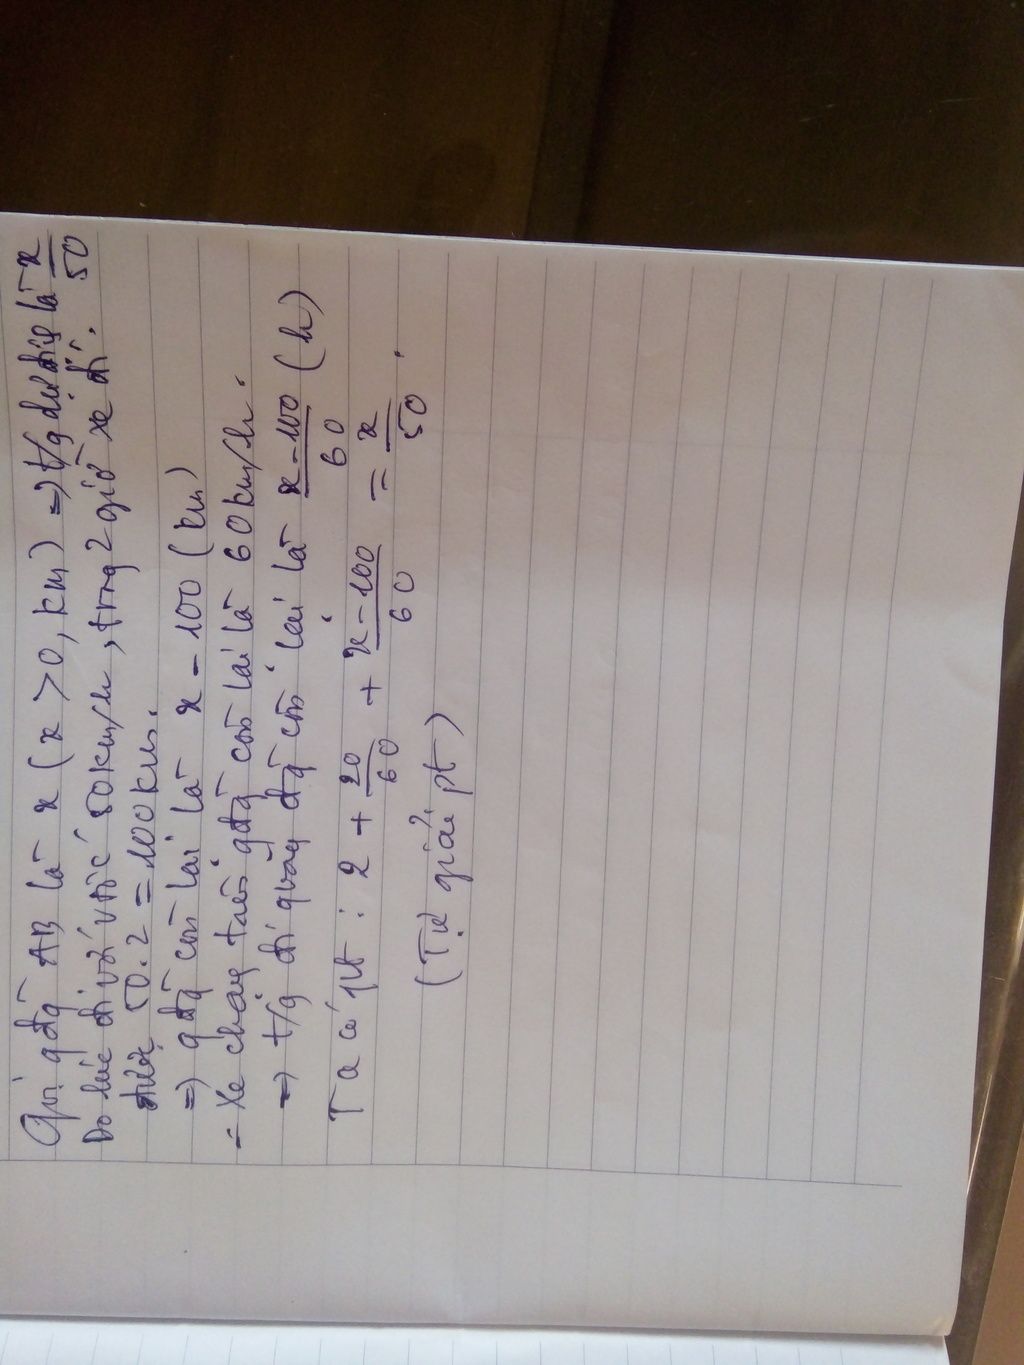 Gọi qđg AB là x (x > 0, km) => t/g dự định là x/50
Do lúc đi với vtốc 50km/h, trong 2 giờ xe đi
được 50.2 = 100km.
=> qđg còn lại là x - 100 (km)
- Xe chạy trên qđg còn lại là 60km/h.
=> t/g đi quãng đg còn lại là x-100/60 (h)
Ta có pt : 2 + 20/60 + x-100/60 = x/50 .
(Tự giải pt)